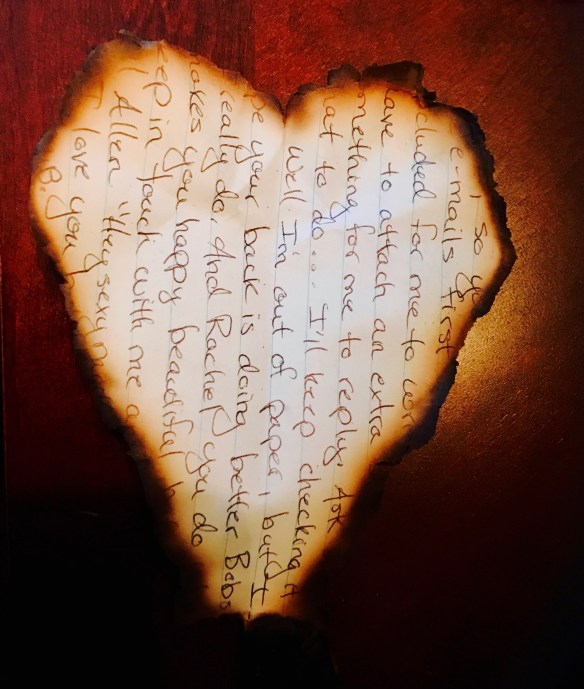 so
e-mails first
cluded for me to wor
ave to attach an extra
mething for me to reply. Ask
at to do... I'll keep checking
Well I'm out of paper, but I
pe your back is doing better Babs
really do. And Rachel you do
makes you happy beautiful
eep in touch with me a
Allen "Hey sexy
I love you
B.